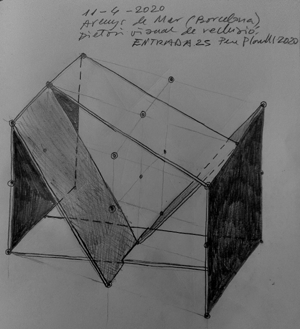 11-4-2020
Arenys de Mar (Barcelona)
dietari visual de reclusió.
ENTRADA 25 Pere Plonell 2020